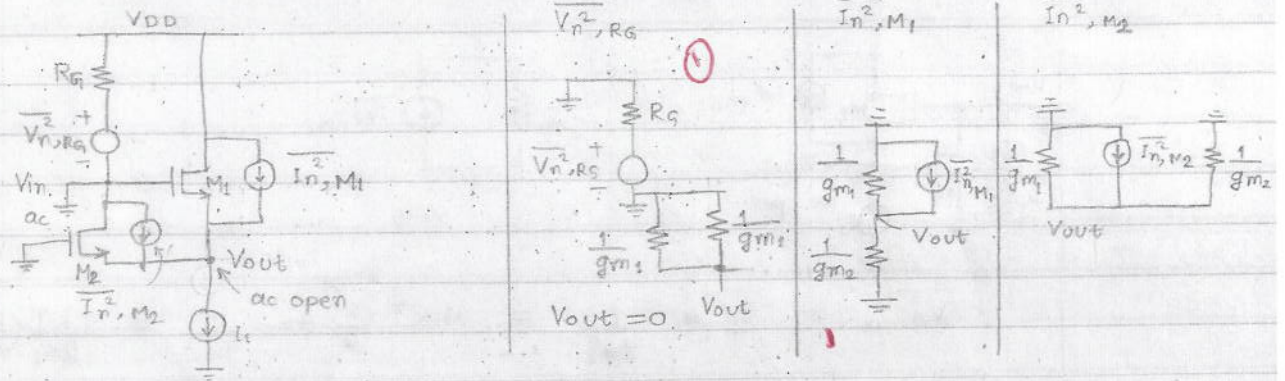 VDD
RG
+
Vn²,RG
-
Vin
ac
M1
In²,M1
M2
In²,M2
Vout
ac open
I1
Vn²,RG
RG
+
Vn²,RS
-
1/gm1
1/gm2
Vout = 0
Vout
In²,M1
1/gm1
In²,M1
Vout
1/gm2
In²,M2
1/gm1
In²,M2
1/gm2
Vout